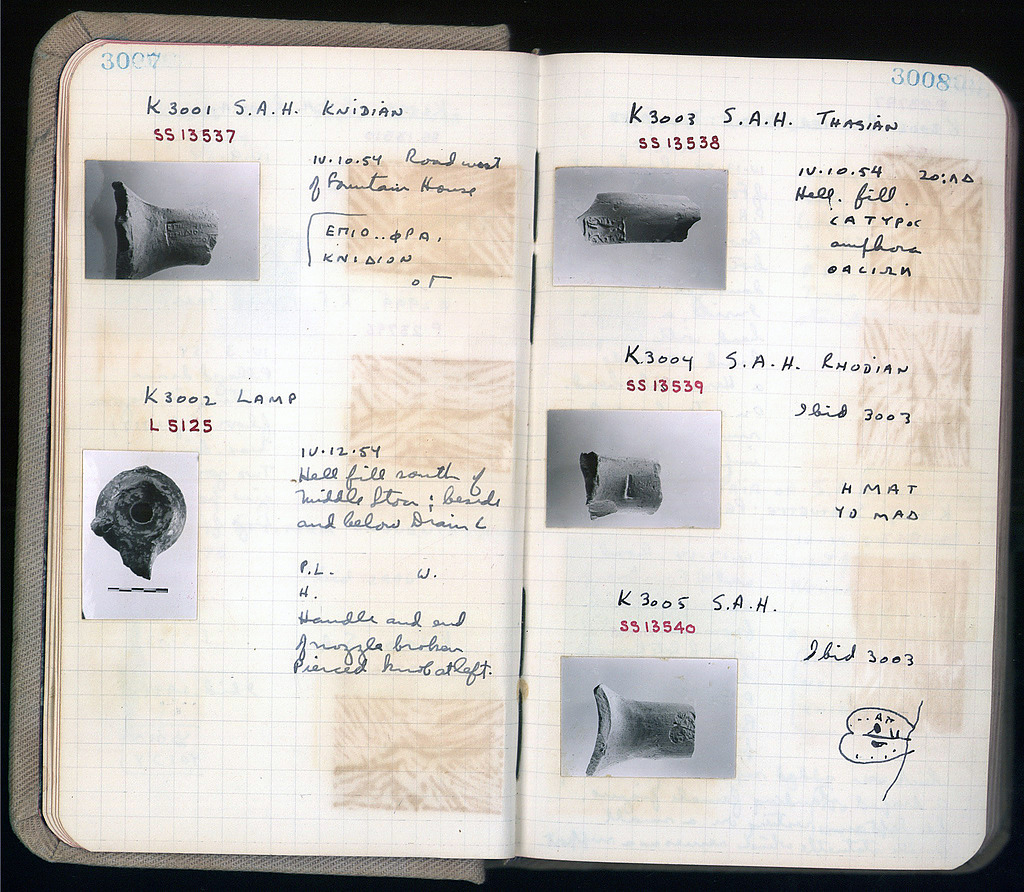 3007
K 3001 S.A.H. KNIDIAN
SS 13537
IV.10.54 Road west
of Fountain House
ΕΠΙΟ..ΦΡΑ.
ΚΝΙΔΙΟΝ
K 3002 LAMP
L 5125
IV.12.54
Hell fill south of
Middle Stoa; beside
and below Drain L
P.L. W.
H.
Handle and end
of nozzle broken
Pierced knob at left.
3008
K 3003 S.A.H. THASIAN
SS 13538
IV.10.54 20:ΛΔ
Hell. fill.
CΑΤΥΡΟC
amphora
ΘΑCΙΩΝ
K 3004 S.A.H. RHODIAN
SS 13539
Ibid 3003
ΗΜΑΤ
ΥΟ ΜΑΔ
K 3005 S.A.H.
SS 13540
Ibid 3003